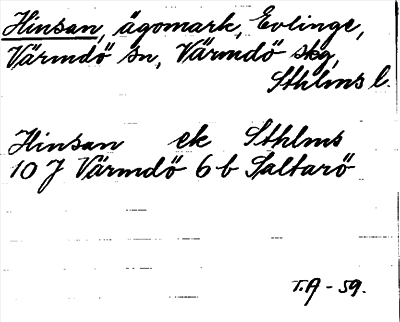 Hinsan, ägomark, Evlinge,
Värmdö sn, Värmdö skg,
Sthlms l.
Hinsan ek Sthlms
10 J Värmdö 6 b Saltarö
T.A - 59.